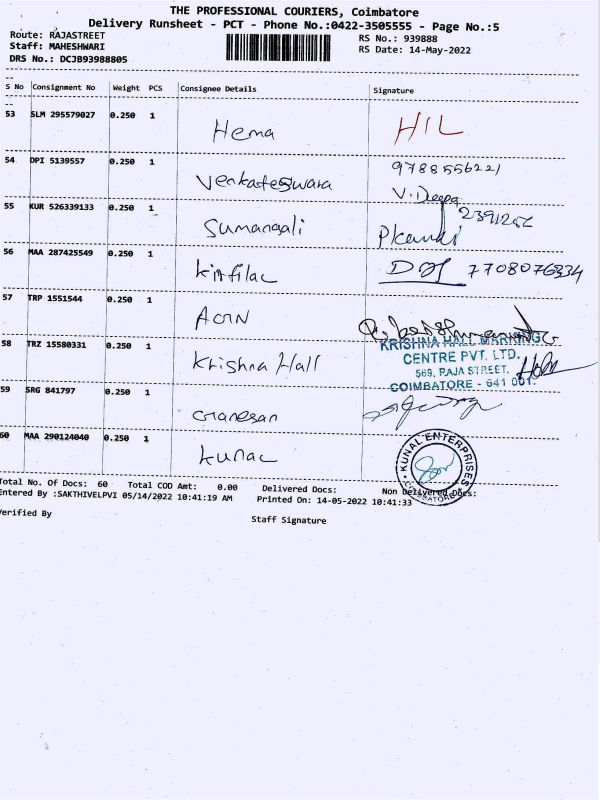 THE PROFESSIONAL COURIERS, Coimbatore
Delivery Runsheet - PCT - Phone No.:0422-3505555 - Page No.:5
Route: RAJASTREET
RS No.: 939888
Staff: MAHESHWARI
RS Date: 14-May-2022
DRS No.: DCJB93988805
S No Consignment No Weight PCS Consignee Details Signature
53 SLM 295579027 0.250 1 Hema HIL
54 DPI 5139557 0.250 1 Venkateswara 9788556221
V. Deepa
55 KUR 526339133 0.250 1 Sumangali
56 MAA 287425549 0.250 1 7708076334
57 TRP 1551544 0.250 1
58 TRZ 15580331 0.250 1 Krishna Hall KRISHNA HALL MARKING
CENTRE PVT. LTD.
569, RAJA STREET,
COIMBATORE - 641 001.
59 SRG 841797 0.250 1 Ganesan
60 MAA 290124040 0.250 1 Kunal KUNAL ENTERPRISES
COIMBATORE
Total No. Of Docs: 60 Total COD Amt: 0.00 Delivered Docs: Non Delivered Docs:
Entered By :SAKTHIVELPVI 05/14/2022 10:41:19 AM Printed On: 14-05-2022 10:41:33
Verified By
Staff Signature